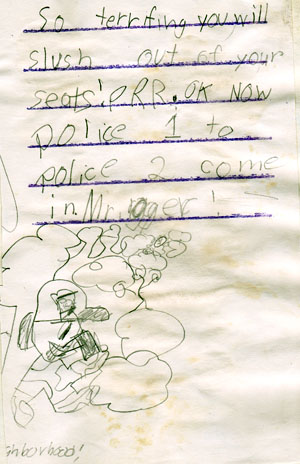 So terrifing you will
slush out of your
seats! PRR. OK NOW
police 1 to
police 2 come
in. Mr. !